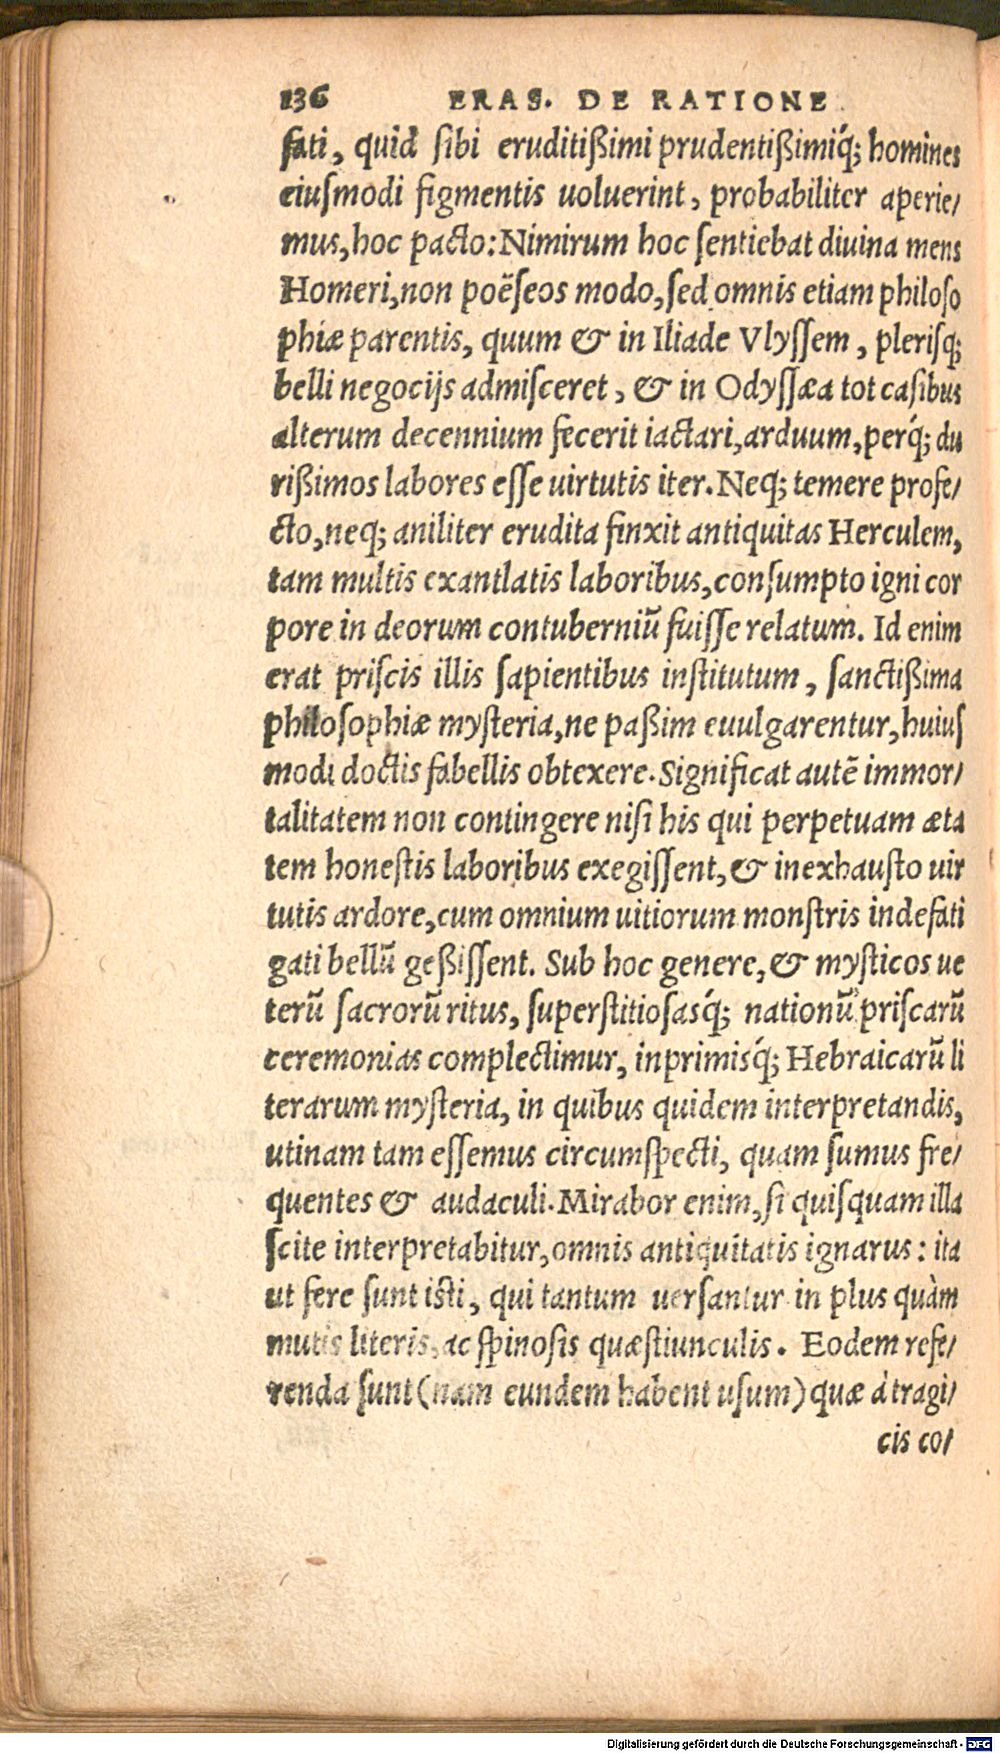 136 ERAS. DE RATIONE
fati, quid ſibi eruditißimi prudentißimiq́; homines
eiuſmodi figmentis uoluerint, probabiliter aperie/
mus, hoc pacto: Nimirum hoc ſentiebat diuina mens
Homeri, non poëſeos modo, ſed omnis etiam philoſo
phiæ parentis, quum & in Iliade Vlyſſem, pleriſq;
belli negocijs admiſceret, & in Odyſſæa tot caſibus
alterum decennium fecerit iactari, arduum, perq́; du
rißimos labores eſſe uirtutis iter. Neq; temere profe/
cto, neq; aniliter erudita finxit antiquitas Herculem,
tam multis exantlatis laboribus, conſumpto igni cor
pore in deorum contuberniũ fuiſſe relatum. Id enim
erat priſcis illis ſapientibus inſtitutum, ſanctißima
philoſophiæ myſteria, ne paßim euulgarentur, huiuſ
modi doctis fabellis obtexere. Significat autẽ immor/
talitatem non contingere niſi his qui perpetuam æta
tem honeſtis laboribus exegiſſent, & inexhauſto uir
tutis ardore, cum omnium uitiorum monſtris indefati
gati bellũ geßiſſent. Sub hoc genere, & myſticos ue
terũ ſacrorũ ritus, ſuperſtitioſasq́; nationũ priſcarũ
ceremonias complectimur, inprimisq́; Hebraicarũ li
terarum myſteria, in quibus quidem interpretandis,
utinam tam eſſemus circumſpecti, quam ſumus fre/
quentes & audaculi. Mirabor enim, ſi quiſquam illa
ſcite interpretabitur, omnis antiquitatis ignarus: ita
ut fere ſunt iſti, qui tantum uerſantur in plus quàm
mutis literis, ac ſpinoſis quæſtiunculis. Eodem refe/
renda ſunt (nam eundem habent uſum) quæ à tragi/
cis co/
Digitalisierung gefördert durch die Deutsche Forschungsgemeinschaft - DFG